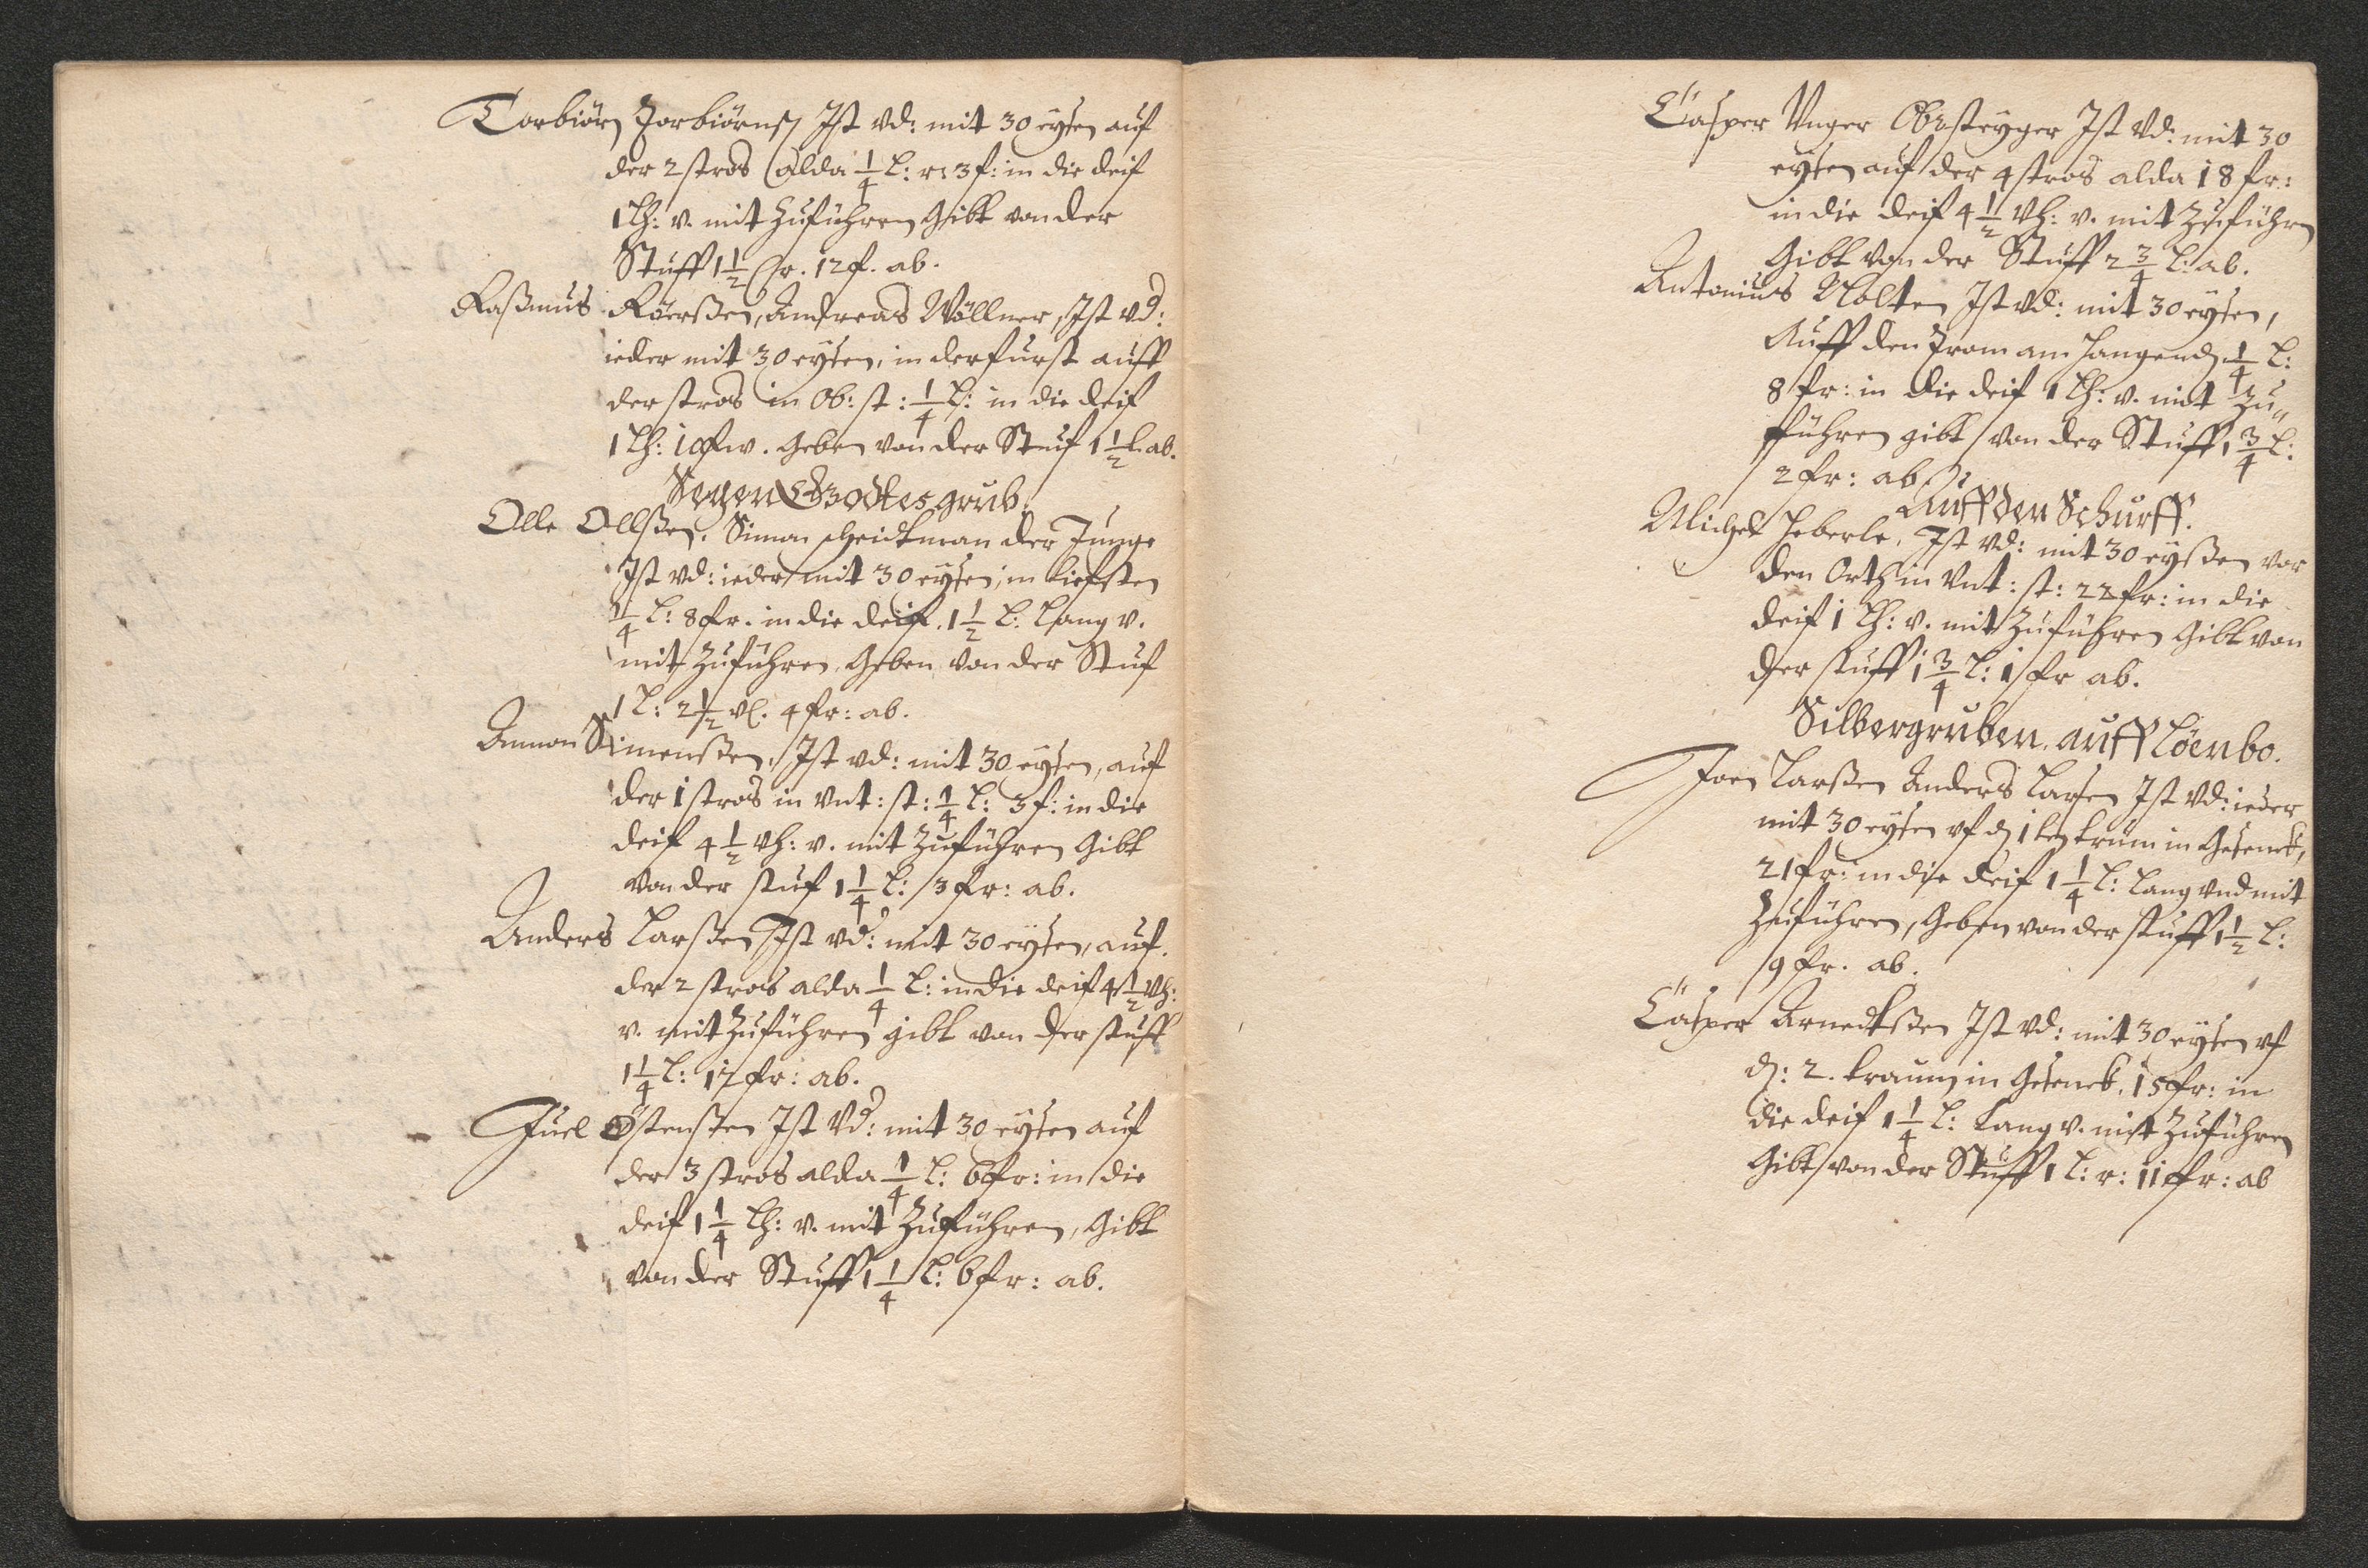 Torbiörn Torbiörns: Ist vd: mit 30 eÿsen auf
der 2 stros alda 1/4 L: r: 3 f: in die deif
1 Lh: v. mit Zuführen Gibt von der
Stuff 1 1/2 L r. 12 f. ab.
Raßmus Röerßen, Andreas Wöllner, Ist vd:
ieder mit 30 eÿsen, in der furst auff
der stros in Ob: st: 1/4 L: in die deif
1 Lh: Geben von der Stuf 1 1/2 L ab.
Segen Gottes grub.
Olle Ollßen, Simon Scheidtman der Junge
Ist vd: ieder mit 30 eÿsen, in tiefsten
1/4 L: 8 fr. in die deif. 1 1/2 L: Lang v.
mit Zuführen, Geben von der Stuf
1 L: 2 1/2 vl. 4 fr: ab.
Amon Simenßen, Ist vd: mit 30 eÿsen, auf
der 1 stros in Vnt: st: 1/4 L: 3 f: in die
deif 4 1/2 vh: v. mit Zuführen Gibt
von der stuf 1 1/4 L: 3 fr: ab.
Anders Larßen, Ist vd: mit 30 eÿsen, auf.
der 2 stros alda 1/4 L: in die deif 4 1/2 vh:
v. mit Zuführen gibt von der stuff
1 1/4 L: 12 fr: ab.
Juel Östenßen Ist Vd: mit 30 eÿsen auf
der 3 stros alda 1/4 L: 6 fr: in die
deif 1 1/4 Lh: v. mit Zuführen, Gibt
von der Stuff 1 1/4 L: 6 fr: ab.
Casper Vnger Obrsteÿger Ist Vd: mit 30
eÿsen auf der 4 stros alda 18 fr:
in die deif 4 1/2 Vh: v. mit Zuführen
Gibt von der Stuff 2 3/4 L: ab.
Antonius Nolten Ist vd: mit 30 eÿsen,
Auff den Trom am hangend 1/4 L:
8 fr: in die deif 1 Lh: v. mit Zu„
führen gibt von der Stuff 1 3/4 L:
2 fr: ab
Auff den Schurff.
Michel Heberle, Ist vd: mit 30 eÿßen vor
den Orth in Vnt: st: 22 fr: in die
deif 1 Lh: v. mit Zuführen Gibt von
der stuff 1 3/4 L: 1 fr ab.
Silbergruben. auff Löenbo.
Joen Larßen Anders Larsen Ist Vd: ieder
mit 30 eÿsen vf d 1 ten krum in Gesenck,
21 fr: in die deif 1 1/4 L: Lang vnd mit
Zuführen, Geben von der stuff 1 1/2 L:
9 fr. ab.
Casper Arnedtßen Ist vd: mit 30 eÿsen vf
d: 2. kraum in Gesenck. 15 fr: in
die deif 1 1/4 L: Lang v. mit Zuführen
Gibt von der Stuff 1 L: r: 11 fr: ab